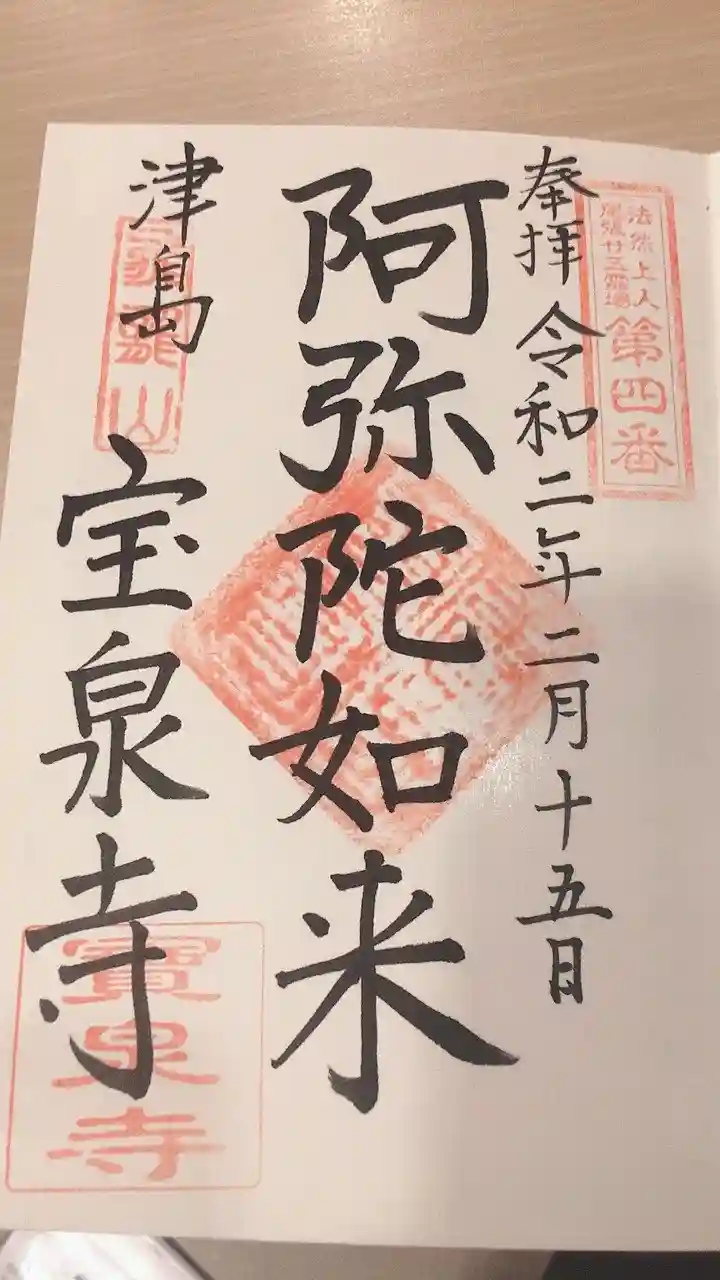 法然上人
尾張廿三霊場
第四番
奉拝 令和二年二月十五日
阿弥陀如来
津島
宝泉寺
寶泉寺